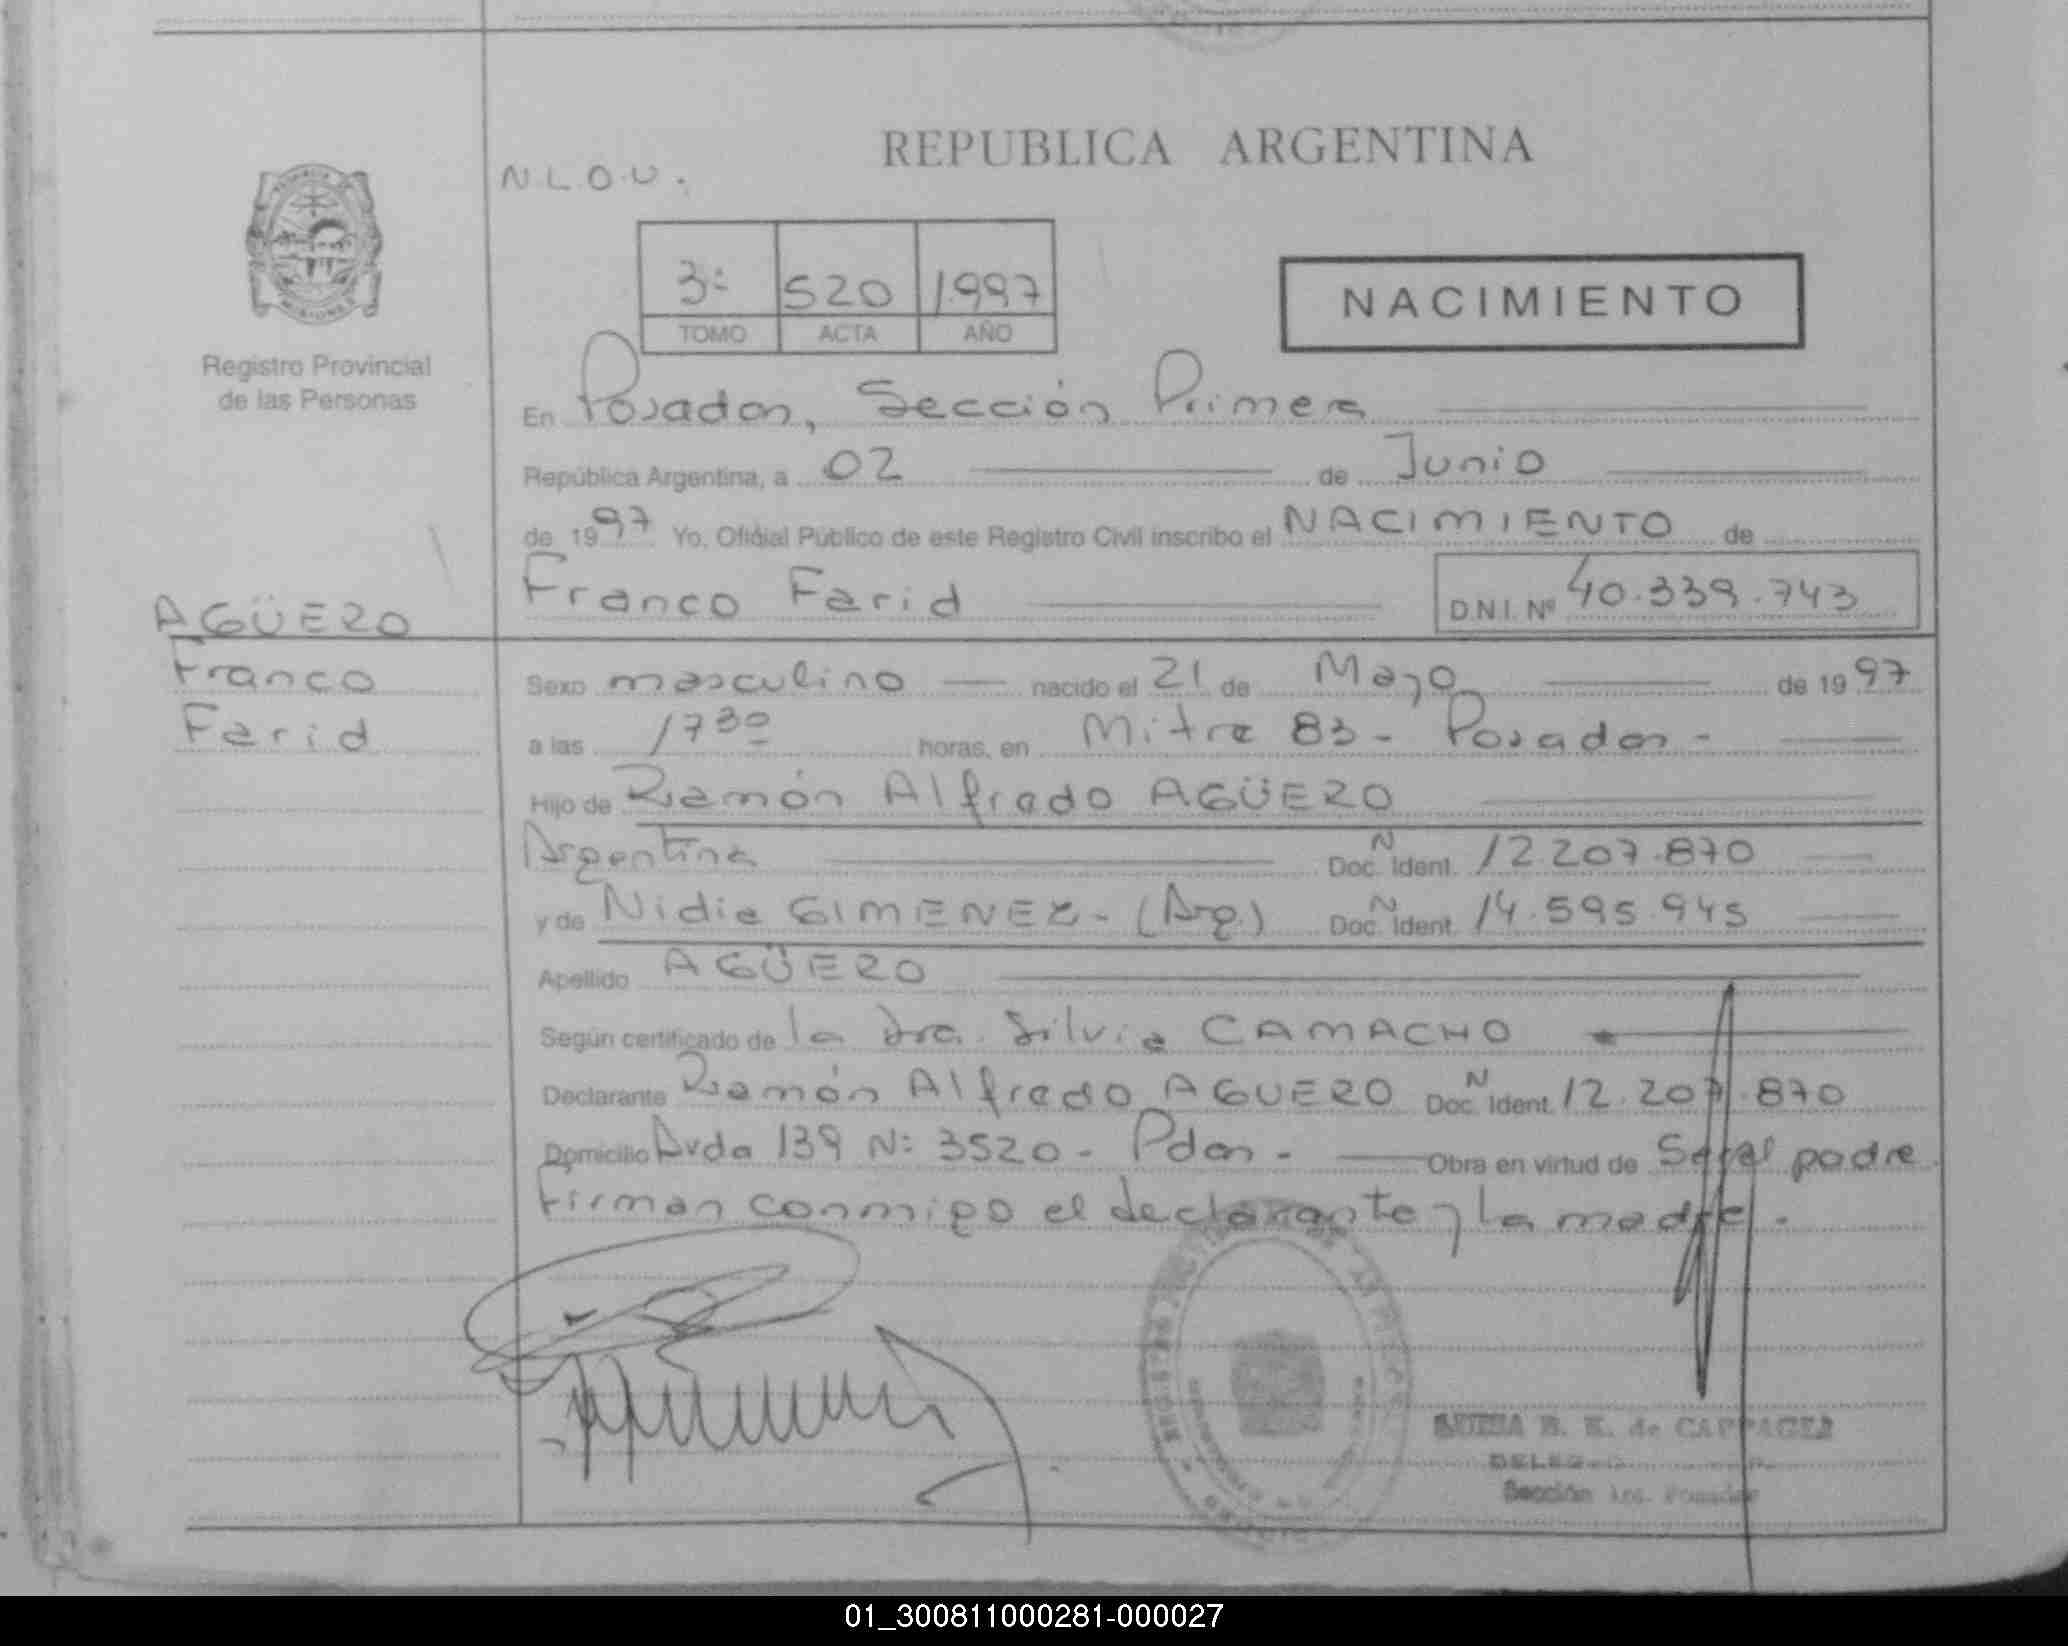 REPUBLICA ARGENTINA
N.L.O.U.
3º 520 1997
TOMO ACTA AÑO
NACIMIENTO
Registro Provincial
de las Personas
En Posadas, Sección Primera
República Argentina, a 02 de Junio
de 1997 Yo, Oficial Público de este Registro Civil inscribo el NACIMIENTO de
Franco Farid D.N.I. Nº 40.339.743
AGÜERO
Franco
Farid
Sexo masculino nacido el 21 de Mayo de 1997
a las 17³⁰ horas, en Mitre 83 - Posadas -
Hijo de Ramón Alfredo AGÜERO
Argentina N Doc. Ident. 12.207.870
y de Nidia GIMENEZ - (Arg.) N Doc. Ident. 14.595.945
Apellido AGÜERO
Según certificado de la Dra. Silvia CAMACHO
Declarante Ramón Alfredo AGUERO N Doc. Ident. 12.207.870
Domicilio Avda 139 N: 3520 - Pdas - Obra en virtud de Ser el padre.
Firman conmigo el declarante y la madre.
B. K. de
Sección 1ra. Posadas
01_300811000281-000027